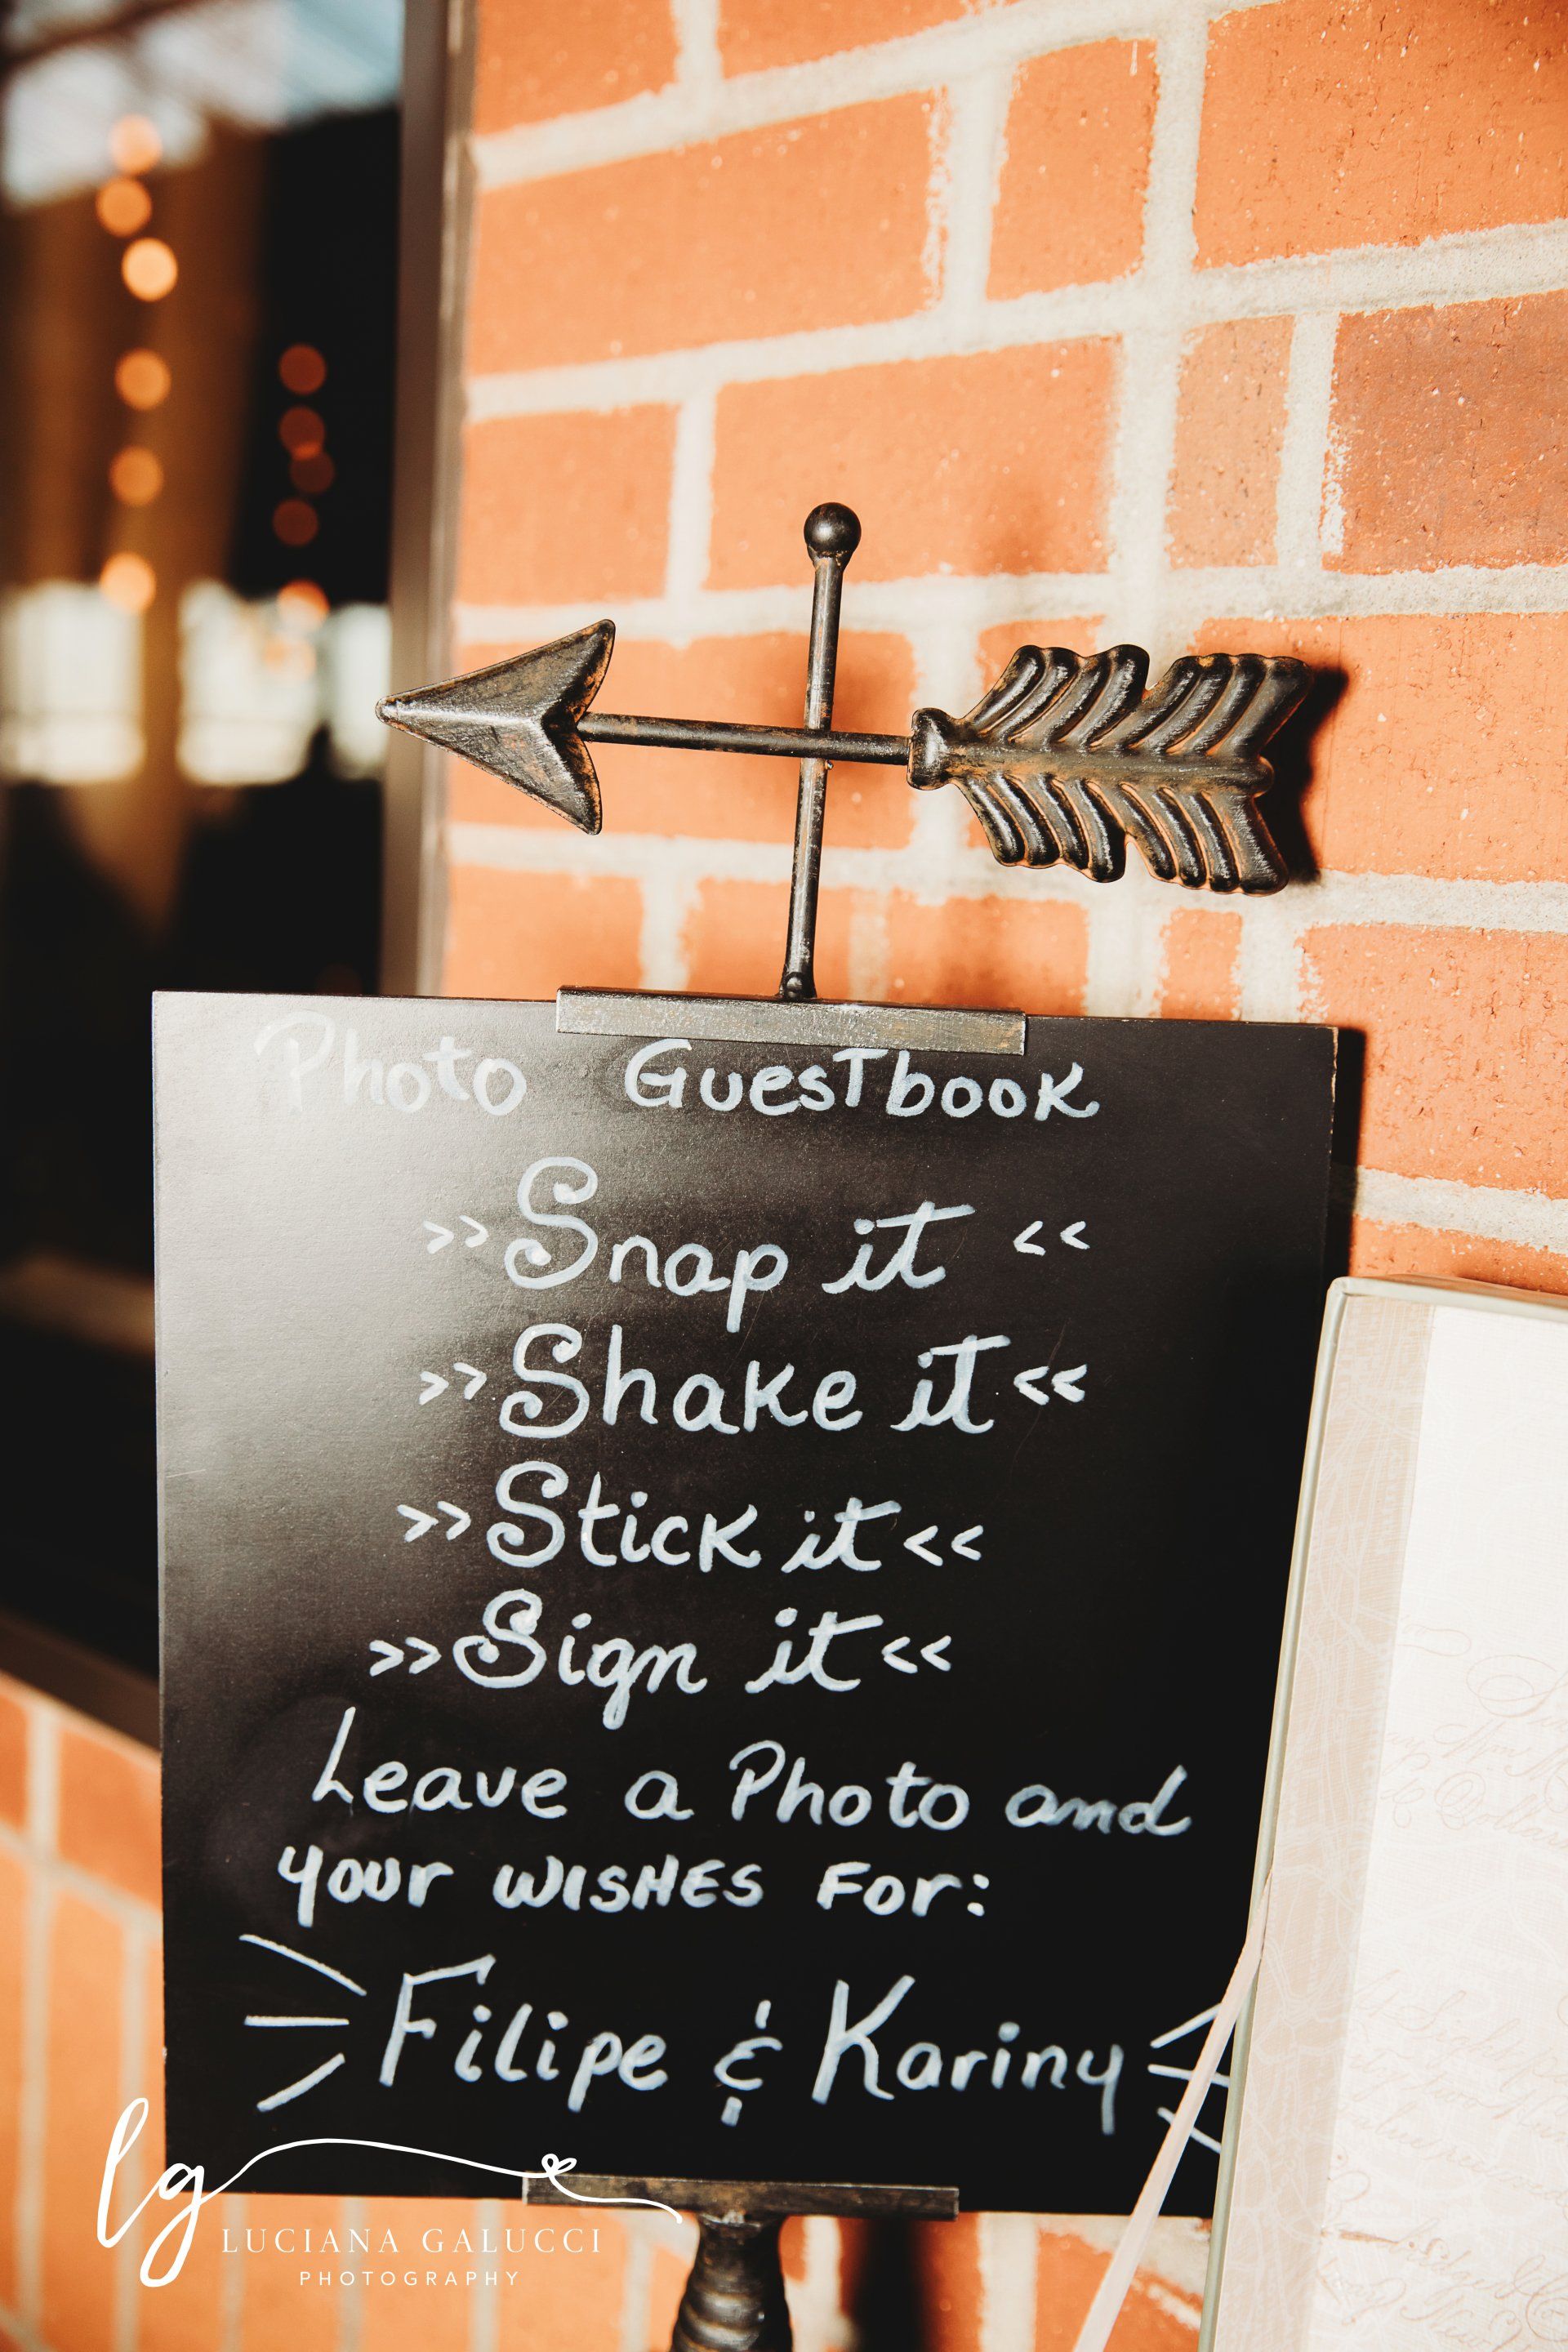 Photo Guestbook
>> Snap it <<
>> Shake it <<
>> Stick it <<
>> Sign it <<
Leave a Photo and
your WISHES For:
Filipe & Kariny
lg
LUCIANA GALUCCI
PHOTOGRAPHY